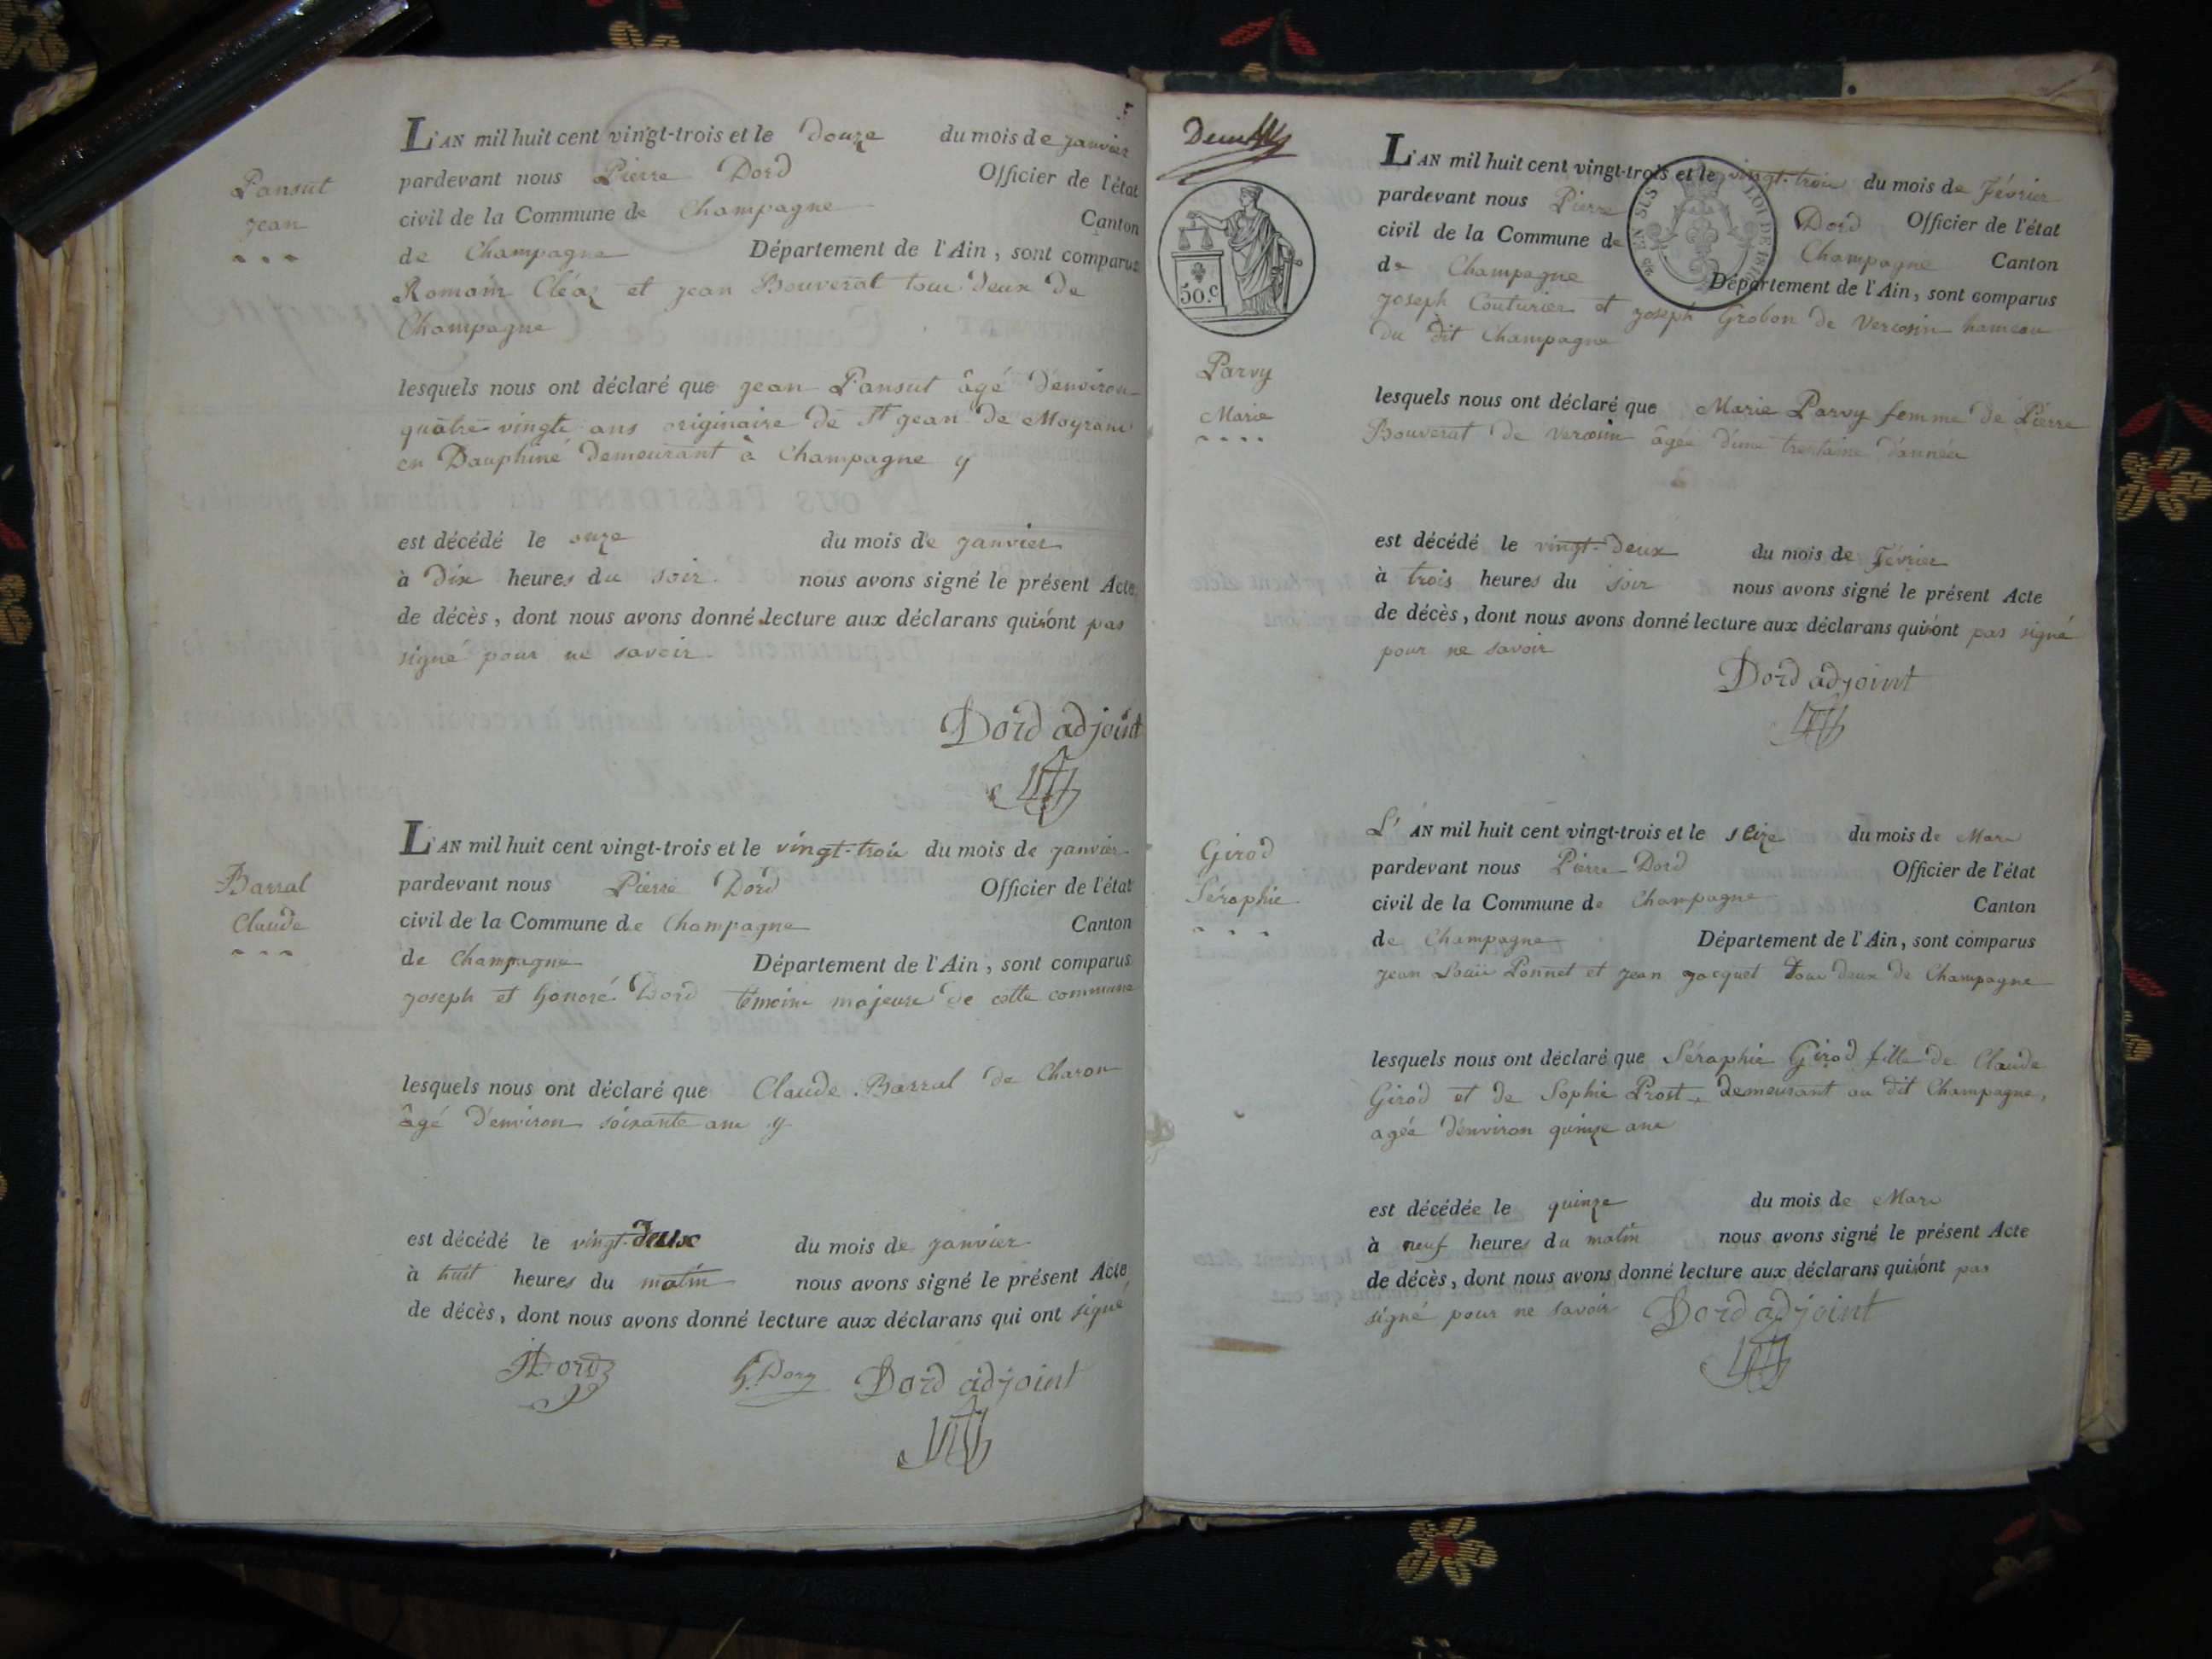 Pansut
Jean
L'AN mil huit cent vingt-trois et le douze du mois de janvier
pardevant nous Pierre Dord Officier de l'état
civil de la Commune de Champagne Canton
de Champagne Département de l'Ain, sont comparus
Romain Cléaz et jean Bouverat tous deux de
Champagne
lesquels nous ont déclaré que jean Pansut âgé d'environ
quatre-vingts ans originaire de St jean de Moyrans
en Dauphiné demeurant à Champagne y
est décédé le onze du mois de janvier
à dix heures du soir. nous avons signé le présent Acte
de décès, dont nous avons donné lecture aux déclarans qui n'ont pas
signé pour ne savoir.
Dord adjoint
Barral
Claude
L'AN mil huit cent vingt-trois et le vingt-trois du mois de janvier
pardevant nous Pierre Dord Officier de l'état
civil de la Commune de Champagne Canton
de Champagne Département de l'Ain, sont comparus
joseph et honoré Dord témoins majeurs de cette commune
lesquels nous ont déclaré que Claude Barral de Charon
âgé d'environ soixante ans y
est décédé le vingt-deux du mois de janvier
à huit heures du matin nous avons signé le présent Acte
de décès, dont nous avons donné lecture aux déclarans qui ont signé
JDord h. Dord Dord adjoint
50.c
EN SUS LOI DE 1816
Parvy
Marie
L'AN mil huit cent vingt-trois et le vingt-trois du mois de Février
pardevant nous Pierre Dord Officier de l'état
civil de la Commune de Champagne Canton
de Champagne Département de l'Ain, sont comparus
joseph Couturier et joseph Grobon de Vercosin hameau
du dit Champagne
lesquels nous ont déclaré que Marie Parvy femme de Pierre
Bouverat de Vercosin âgée d'une trentaine d'années
est décédé le vingt-deux du mois de Février
à trois heures du soir nous avons signé le présent Acte
de décès, dont nous avons donné lecture aux déclarans qui n'ont pas signé
pour ne savoir
Dord adjoint
Girod
Séraphie
L'AN mil huit cent vingt-trois et le seize du mois de Mars
pardevant nous Pierre Dord Officier de l'état
civil de la Commune de Champagne Canton
de Champagne Département de l'Ain, sont comparus
jean Louis Ponnet et jean jacquet tous deux de Champagne
lesquels nous ont déclaré que Séraphie Girod fille de Claude
Girod et de Sophie Prost, demeurant au dit Champagne,
agée d'environ quinze ans
est décédée le quinze du mois de Mars
à neuf heures du matin nous avons signé le présent Acte
de décès, dont nous avons donné lecture aux déclarans qui n'ont pas
signé pour ne savoir Dord adjoint